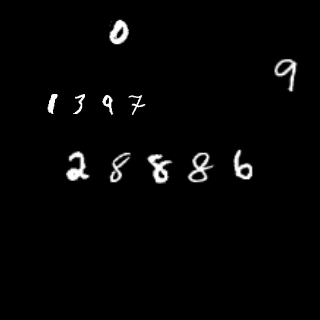 0
9
1397
28886